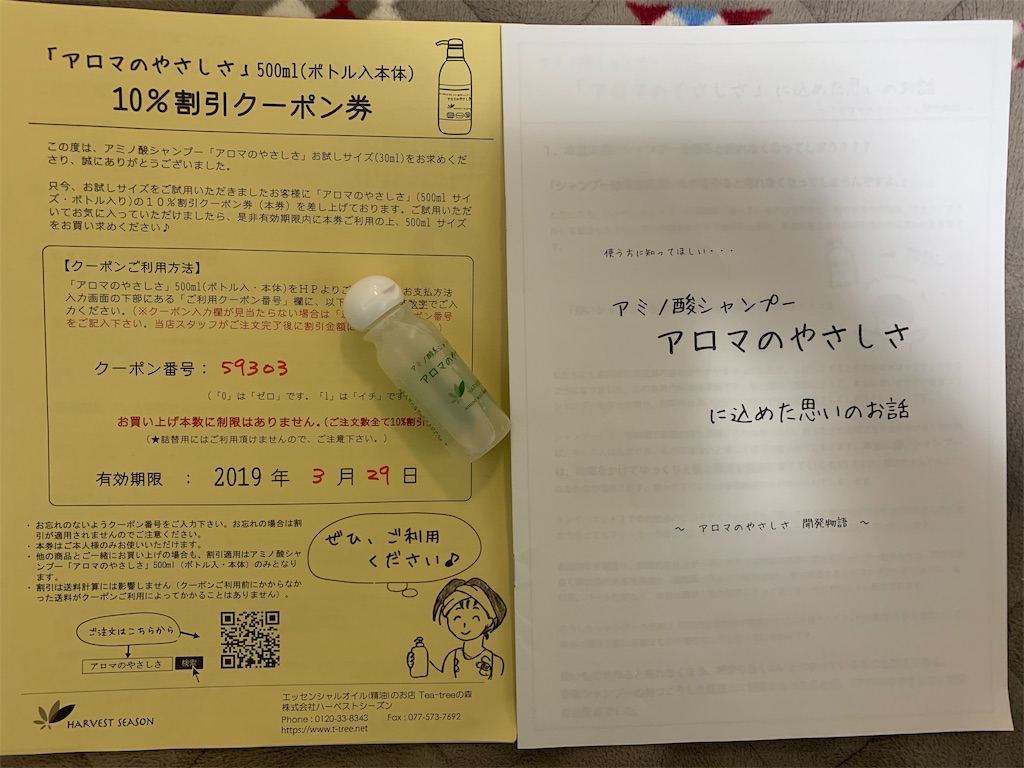 「アロマのやさしさ」500ml(ボトル入本体)
10%割引クーポン券
この度は、アミノ酸シャンプー「アロマのやさしさ」お試しサイズ(30ml)をお求めくだ
さり、誠にありがとうございました。
只今、お試しサイズをご試用いただきましたお客様に「アロマのやさしさ」(500ml サイ
ズ・ボトル入り)の10%割引クーポン券(本券)を差し上げております。ご試用いただ
いてお気に入っていただけましたら、是非有効期限内に本券ご利用の上、500ml サイズ
をお買い求めください♪
【クーポンご利用方法】
「アロマのやさしさ」500ml(ボトル入・本体)をHPより お支払方法
入力画面の下部にある「ご利用クーポン番号」欄に、以下 数字でご入
力ください。(※クーポン入力欄が見当たらない場合は ポン番号
をご記入下さい。当店スタッフがご注文完了後に割引金額に )
クーポン番号: 59303
(「0」は「ゼロ」です。「1」は「イチ」です
お買い上げ本数に制限はありません。(ご注文数全て10%割引
(★詰替用にはご利用頂けませんので、ご注意下さい。)
有効期限 : 2019 年 3 月 29 日
・お忘れのないようクーポン番号をご入力下さい。お忘れの場合は割
引が適用されませんのでご注意ください。
・本券はご本人様のみお使いいただけます。
・他の商品とご一緒にお買い上げの場合も、割引適用はアミノ酸シャ
ンプー「アロマのやさしさ」500ml(ボトル入・本体)のみとなり
ます。
・割引は送料計算には影響しません(クーポンご利用前にかからなか
った送料がクーポンご利用によってかかることはありません)。
ぜひ、ご利用
ください♪
ご注文はこちらから
アロマのやさしさ 検索
HARVEST SEASON
エッセンシャルオイル(精油)のお店 Tea-treeの森
株式会社ハーベストシーズン
Phone : 0120-33-8343 Fax : 077-573-7692
https://www.t-tree.net
アミノ酸シャン
アロマのや
使う方に知ってほしい・・・
アミノ酸シャンプー
アロマのやさしさ
に込めた思いのお話
~ アロマのやさしさ 開発物語 ~